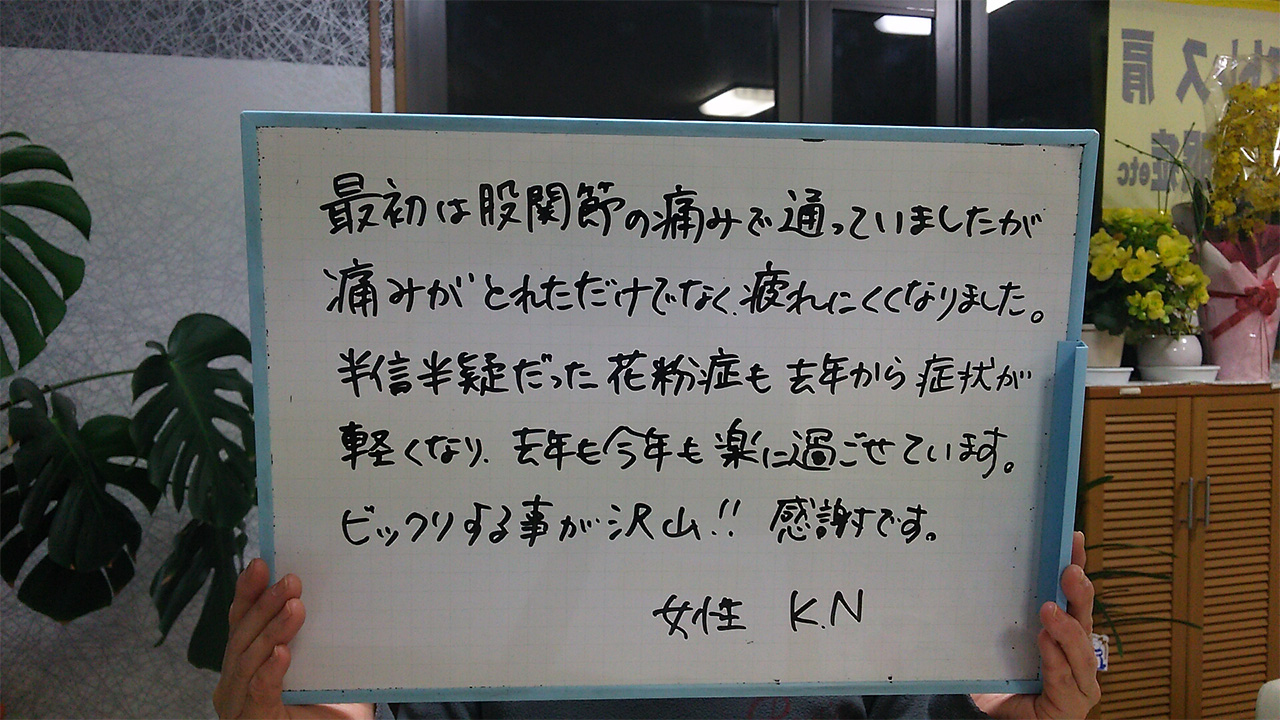 最初は股関節の痛みで通っていましたが
痛みがとれただけでなく、疲れにくくなりました。
半信半疑だった花粉症も去年から症状が
軽くなり、去年も今年も楽に過ごせています。
ビックリする事が沢山!! 感謝です。
女性 K.N
肩
症etc